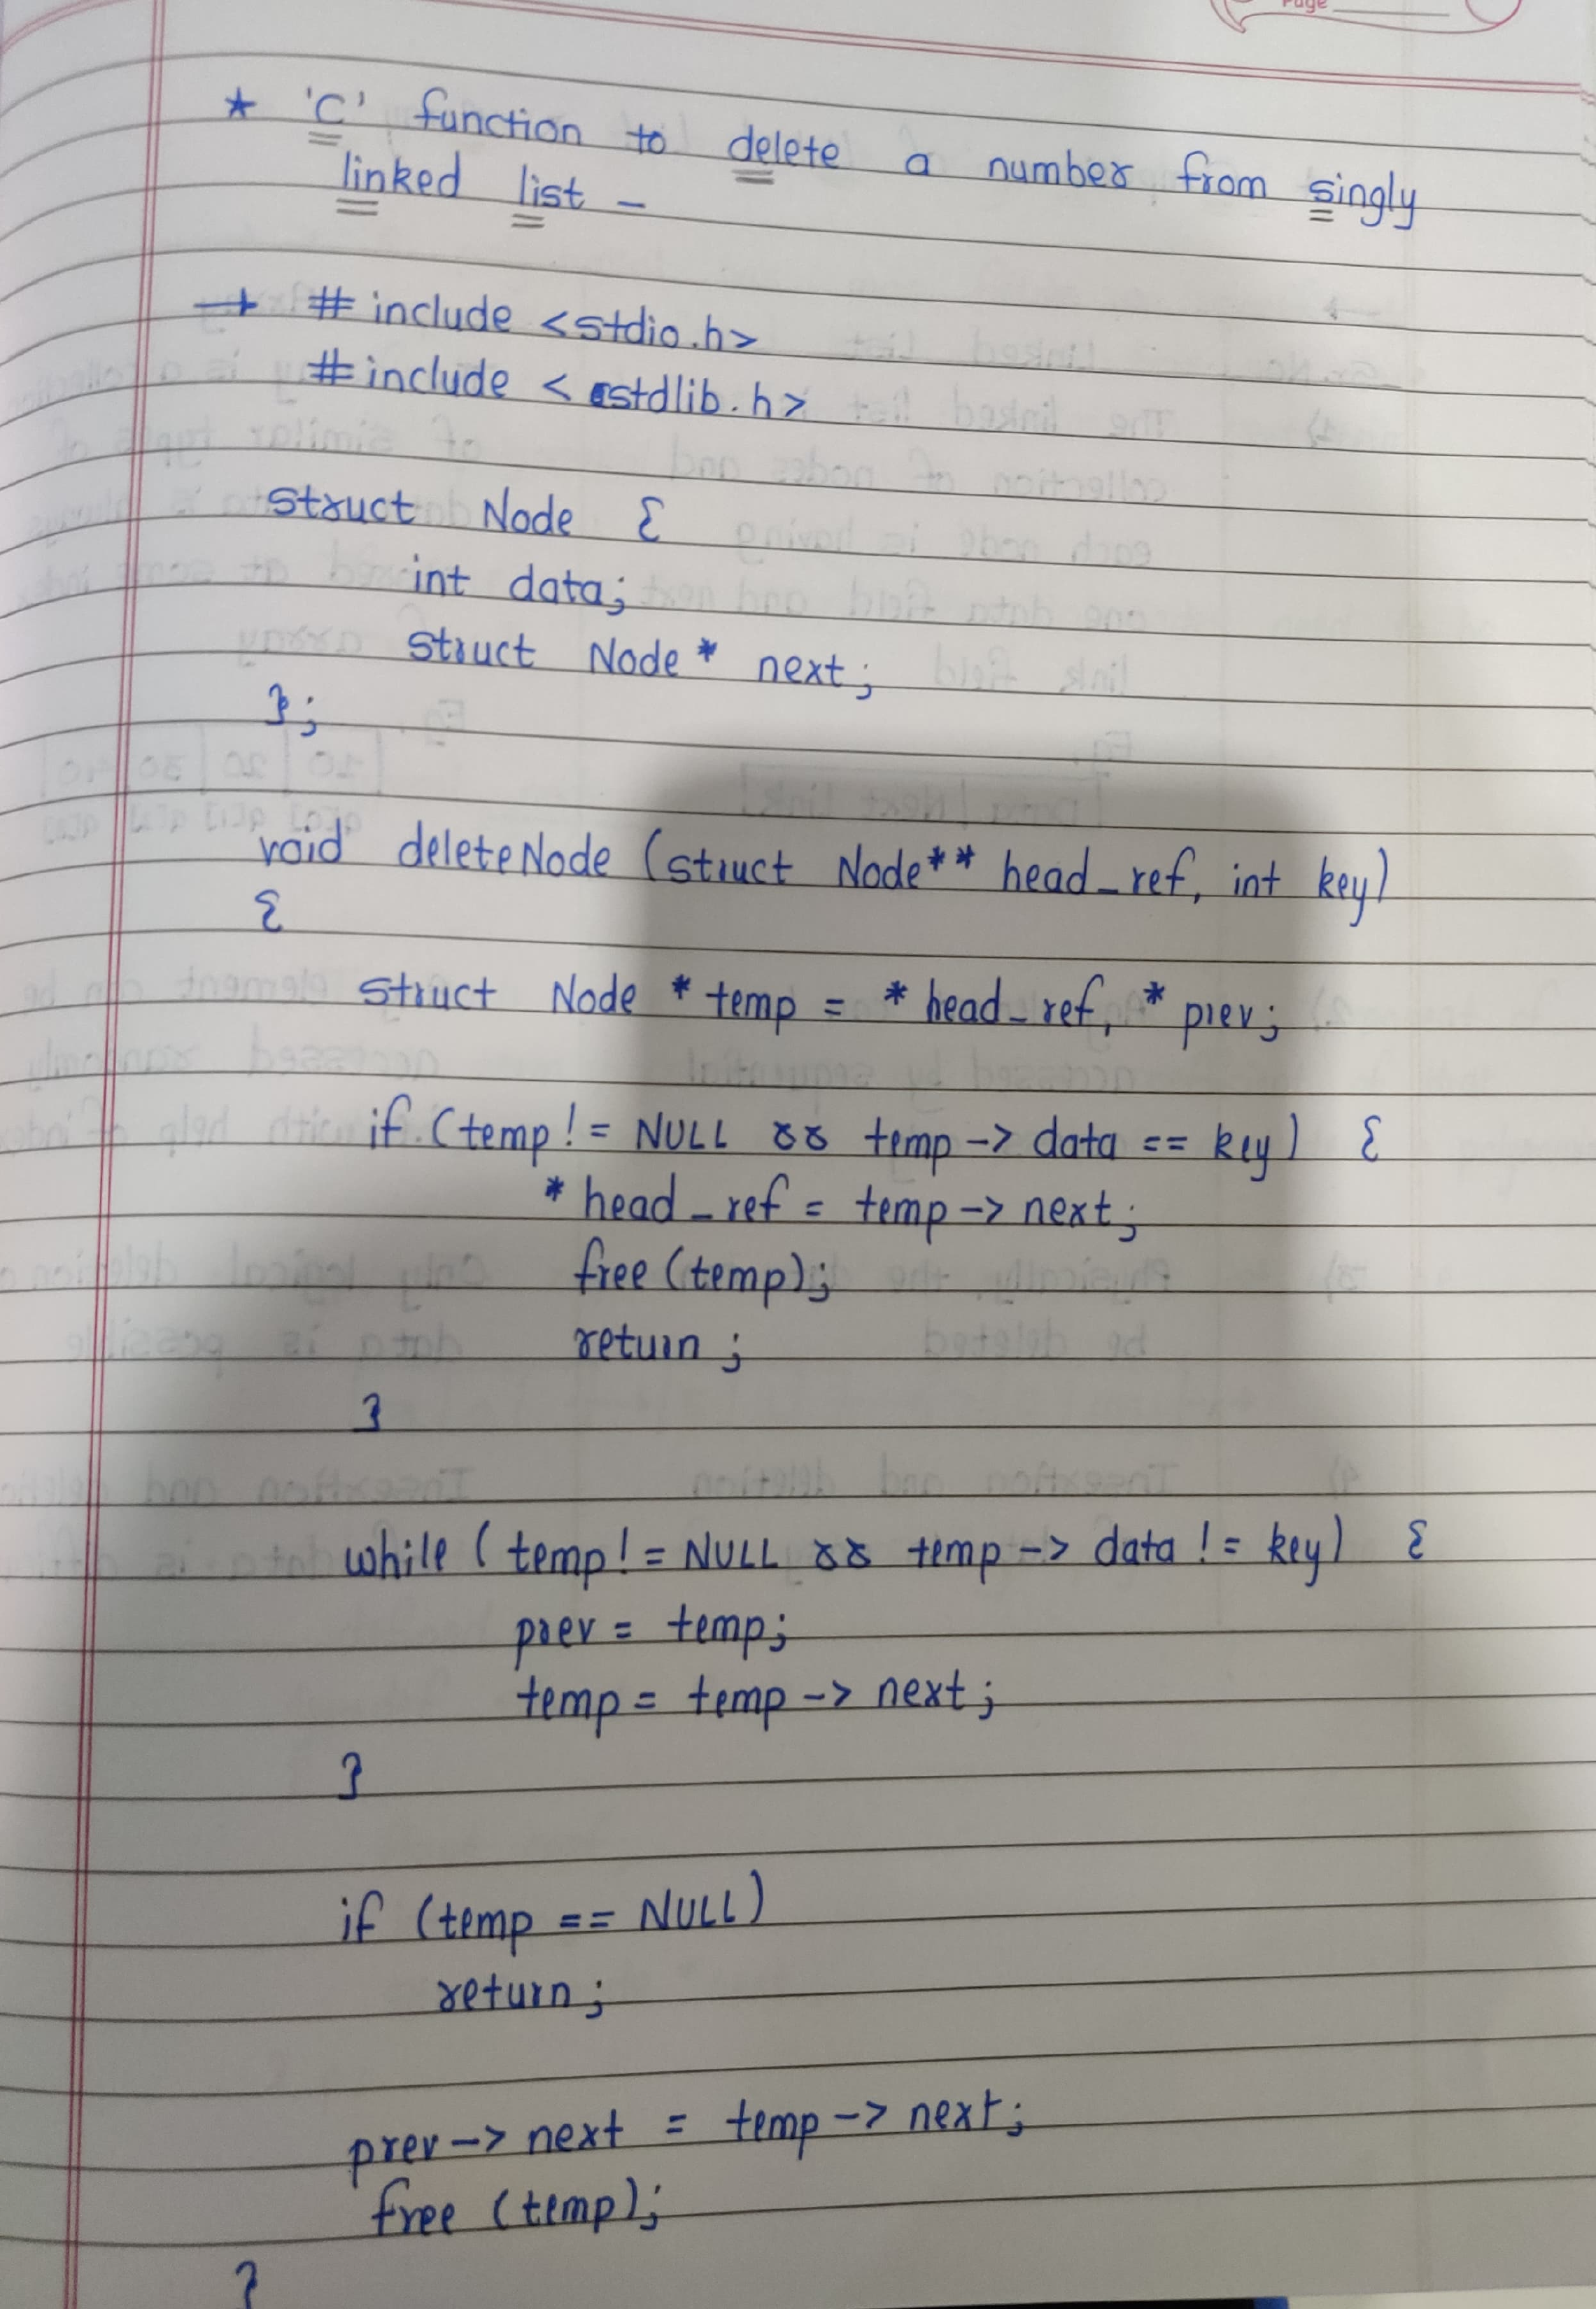 Page
* 'C' function to delete a number from singly
linked list -
→ # include <stdio.h>
# include < stdlib.h>
struct Node {
int data;
struct Node * next;
};
void deleteNode (struct Node** head_ref, int key)
{
struct Node * temp = * head_ref, * prev;
if (temp != NULL && temp -> data == key) {
* head_ref = temp -> next;
free (temp);
return ;
}
while ( temp != NULL && temp -> data != key) {
prev = temp;
temp = temp -> next;
}
if (temp == NULL)
return ;
prev -> next = temp -> next;
free (temp);
}